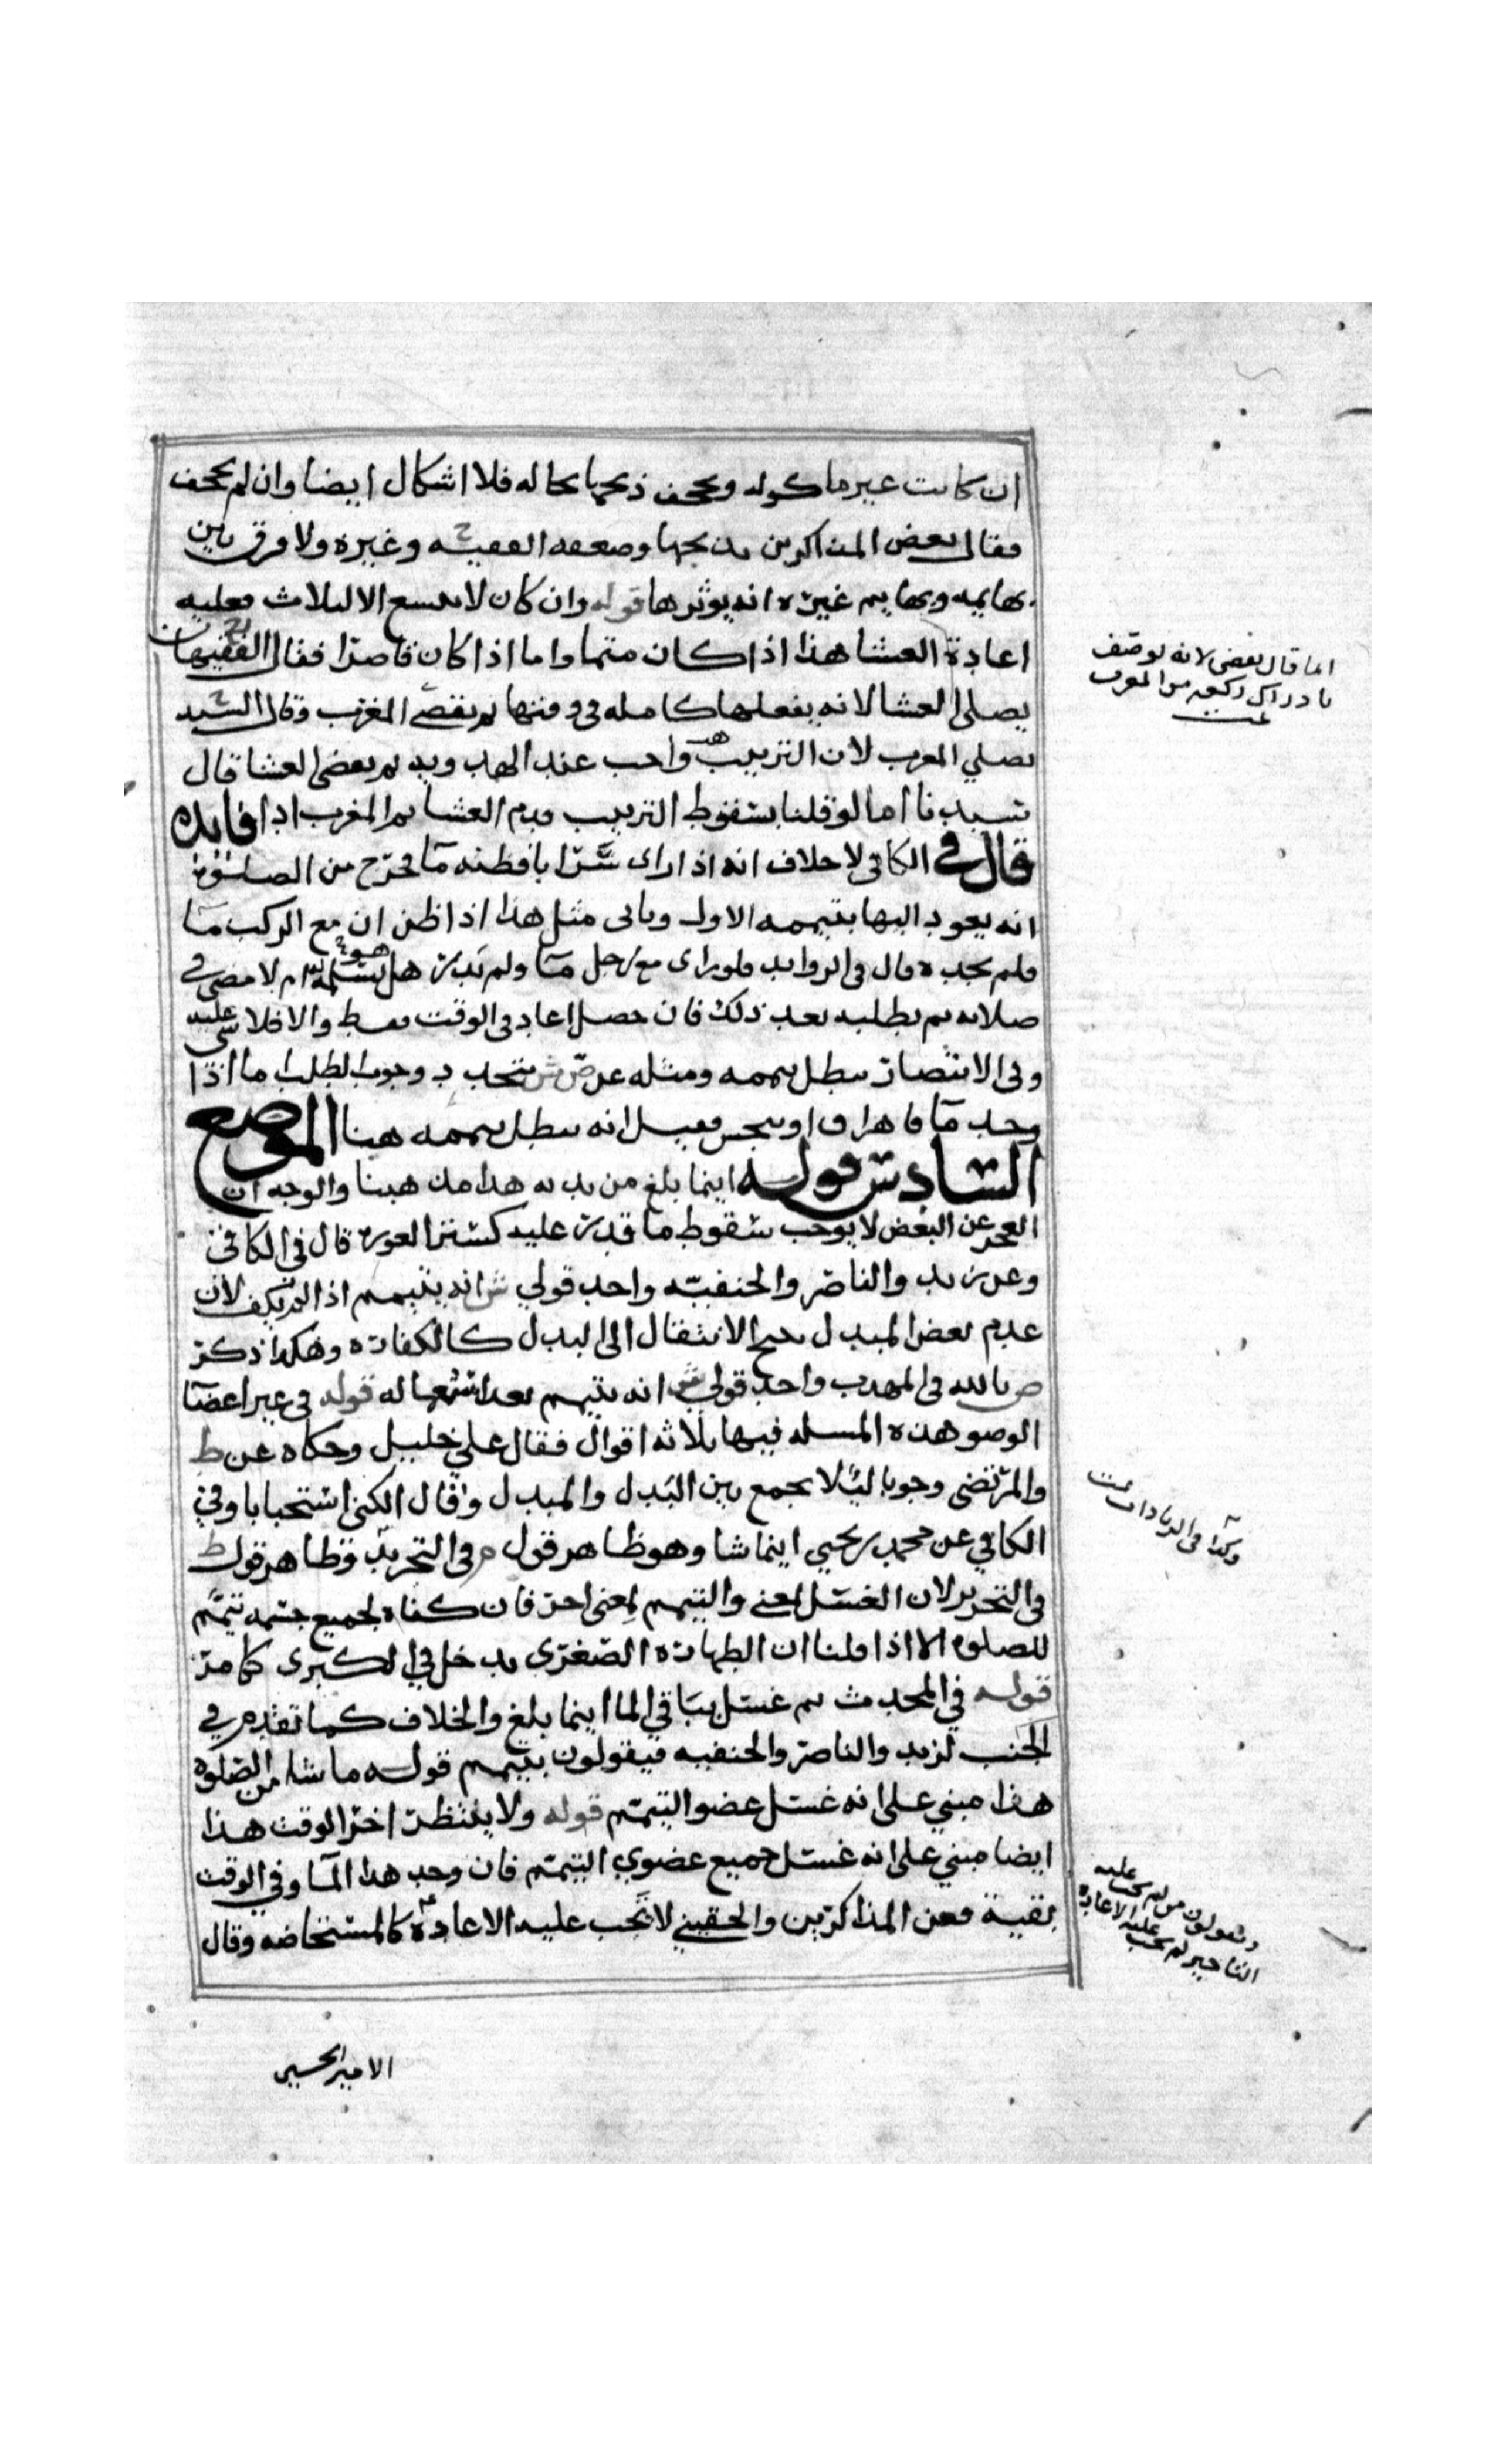 ان كانت غير ماكوله ويجحف ذبحها بحاله فلا اشكال ايضا وان لم يجحف
فقال بعض المذاكرين يذبحها وضعفه الفقيه ح وغيره ولا فرق بين
بهايمه وبهايم غيره انه يوثرها قوله وان كان لا يتسع الا لثلاث فعليه
اعادة العشا هذا اذا كان متمما واما اذا كان قاصرا فقال الفقيهان
يصلي العشا لانه يفعلها كامله في وقتها ثم يقضي المغرب وقال السيد
يصلي المغرب لان الترتيب واجب عند الهدويه ثم بعض العشا قال
سيدنا اما لو قلنا بسقوط الترتيب قدم العشا ثم المغرب اذا فايده
قال في الكافي لا خلاف انه اذا راى سرابا فظنه مآ فخرج من الصلوة
انه يعود اليها بتيممه الاول وياتي مثل هذا اذا ظن ان مع الركب مآ
فلم يجده قال في الزوايد فلو راى مع رجل مآ ولم يدر هل يسلمه هو ام لا مضى في
صلاته ثم يطلبه بعد ذلك فان حصل اعاد في الوقت فقط والا فلا شي عليه
وفي الانتصار يبطل تيممه ومثله عن ص ش يتجدد وجوب الطلب اما اذا
وجد مآ فاهراق او نجس فقيل انه يبطل تيممه هنا الموضع
السادس قوله اينما بلغ من بدنه هذا مذهبنا والوجه ان
العجز عن البعض لا يوجب سقوط ما قدر عليه كستر العورة قال في الكافي
وعن زيد والناصر والحنفيه واحد قولي ش انه يتيمم اذا لم يكف لان
عدم بعض المبدل يبيح الانتقال الى البدل كالكفارة وهكذا ذكر
ص بالله في المهذب واحد قولي ش انه يتيمم بعد استعماله قوله في غير اعضآ
الوضو هذه المسله فيها ثلاثه اقوال فقال علي خليل وحكاه عن ط
والمرتضى وجوبا ليلا يجمع بين البدل والمبدل وقال الكني استحبابا وفي
الكافي عن محمد بن يحيي اينما شا وهو ظاهر قول م في التجريد وظاهر قول ط
في التحرير لان الغسل لمعنى والتيمم لمعنى اخر فان كفاه لجميع جسمه تيمم
للصلوه الا اذا قلنا ان الطهارة الصغرى يدخل في الكبرى كما مر
قوله في المحدث ثم غسل بباقي الما اينما بلغ والخلاف كما تقدم في
الجنب لزيد والناصر والحنفيه فيقولون بتيمم قوله ما شا من الصلوه
هذا مبني على انه غسل عضو التيمم قوله ولا ينتظر اخر الوقت هذا
ايضا مبني على انه غسل جميع عضوي التيمم فان وجد هذا المآ وفي الوقت
بقية فعن المذاكرين والحقيني لا تجب عليه الاعادة كالمستحاضه وقال
الامير الحسين
انما قال بعض لانه يوصف
بادراك ركعه من المغرب
تمت
وكذا في الزيادات تمت
ويقولون من لم يجب عليه
التاخير لم يجب عليه الاعادة